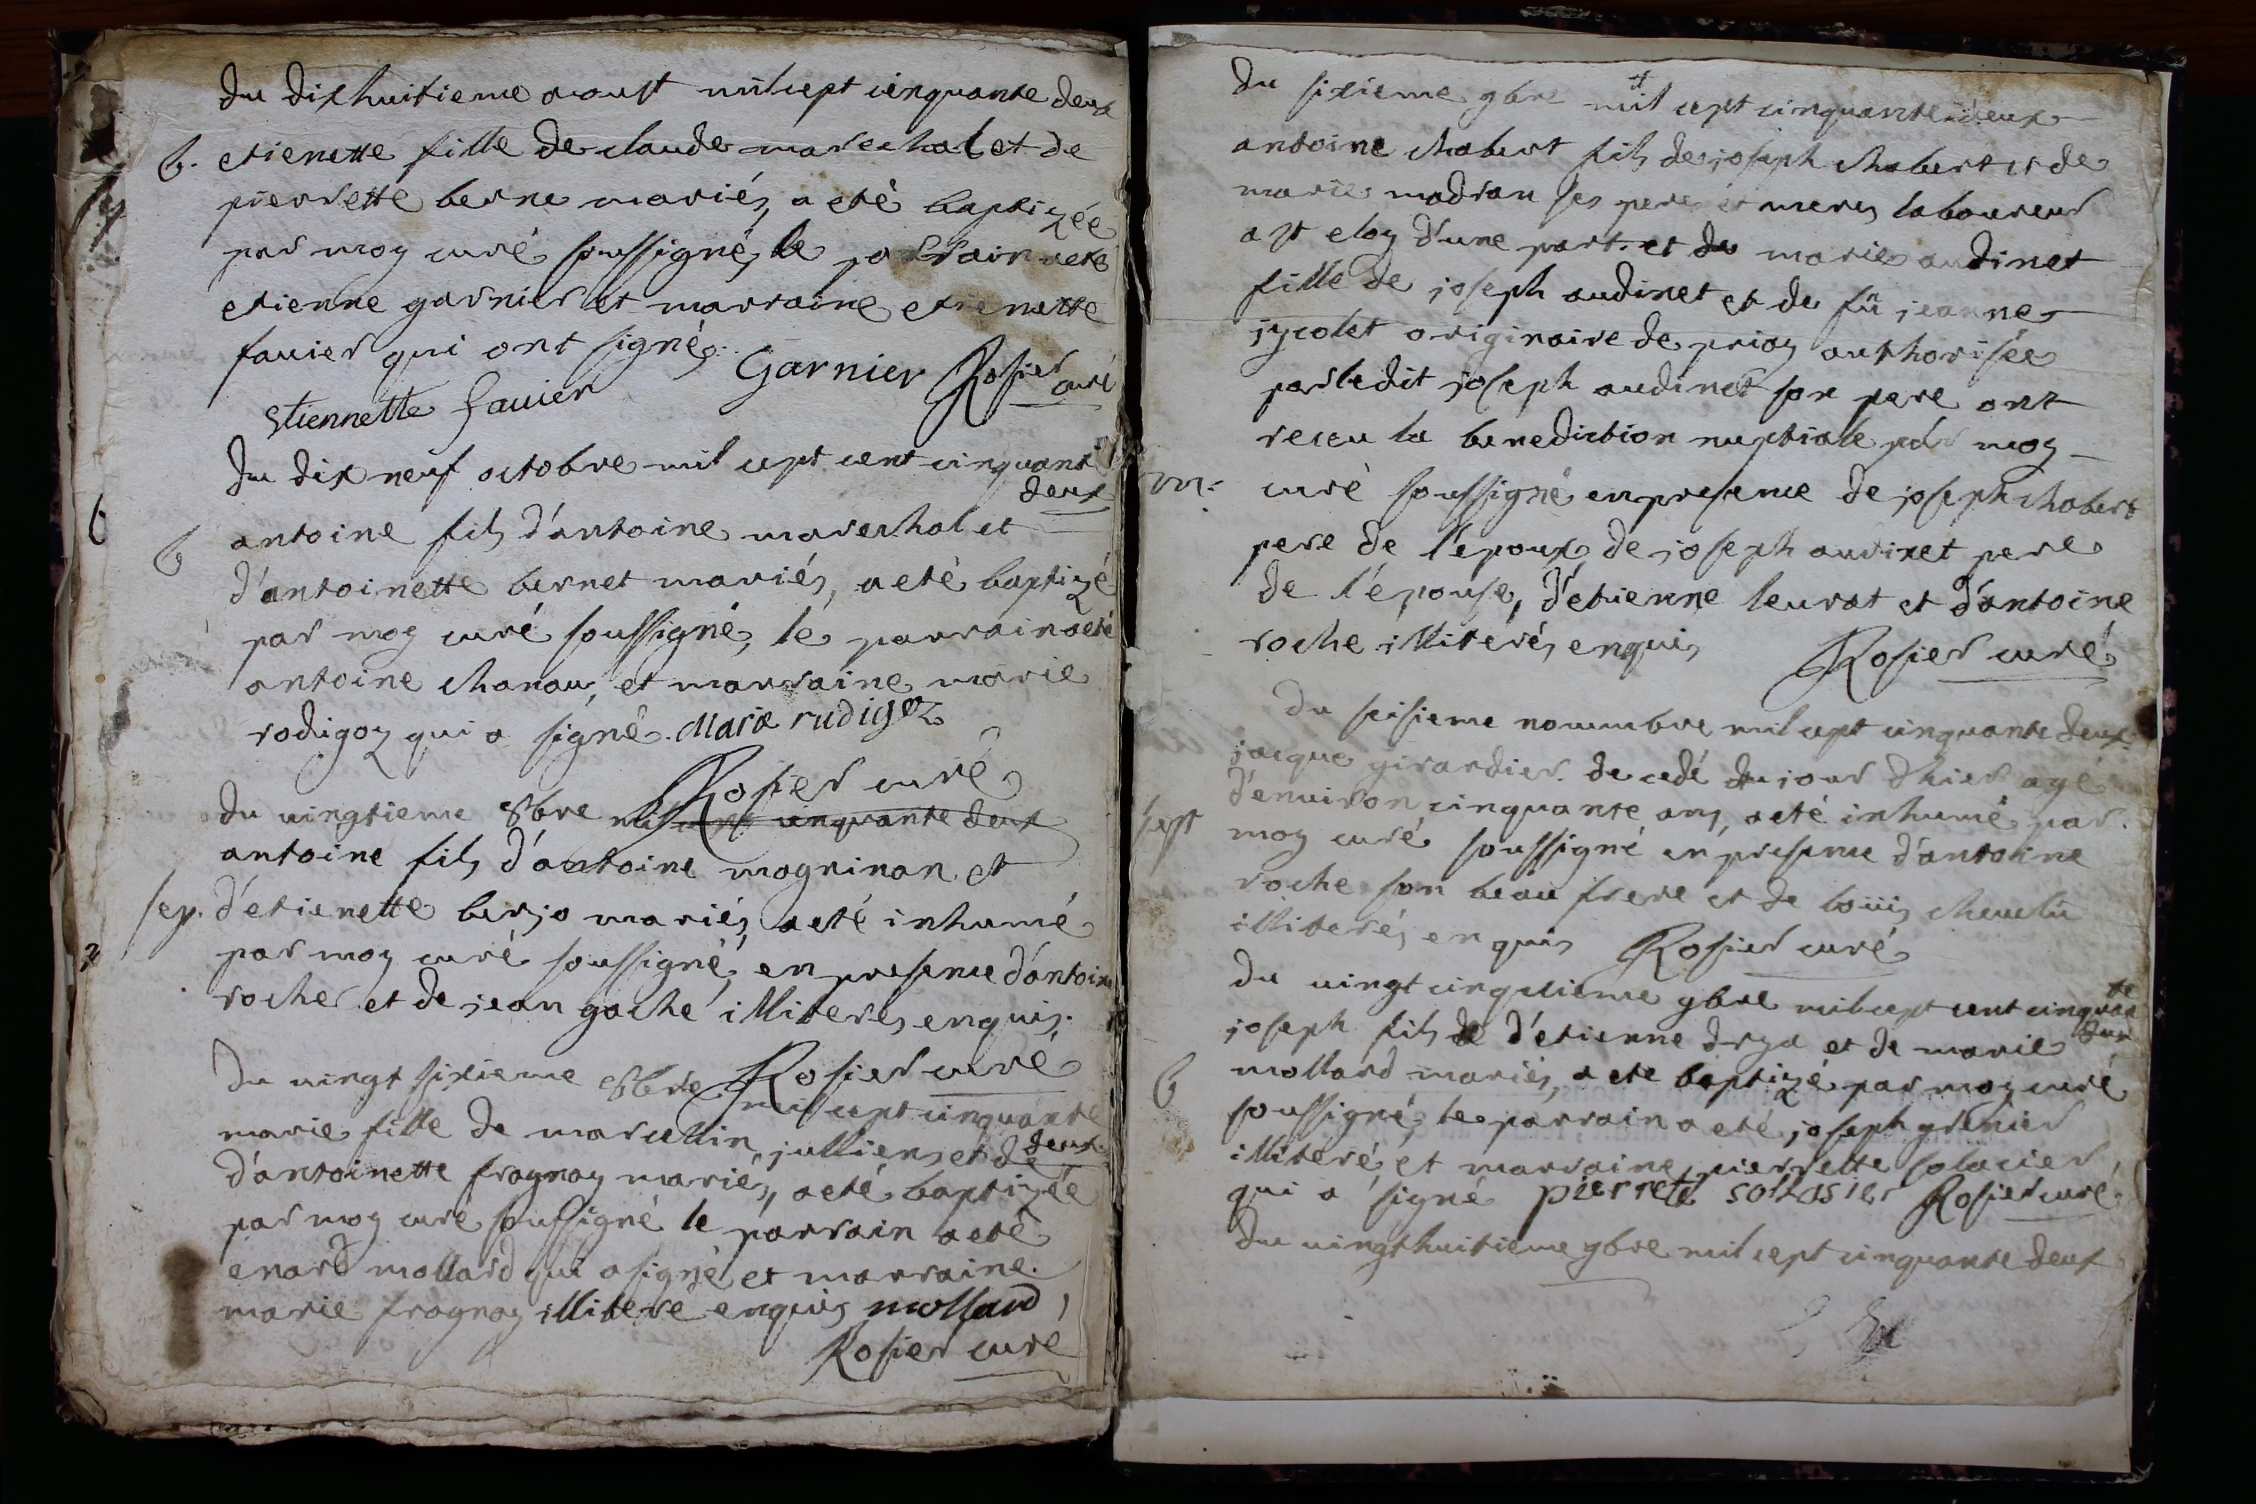 du dixhuitieme aoust mil cept cinquante deux
b. etienette fille de claude marechal et de
pierrette berne mariés, a eté baptizée
par moy curé soussigné, le parrain a eté
etienne garnier et marraine etienette
favier qui ont signé. Garnier Rosier curé
Etiennette favier
du dix neuf octobre mil cept cent cinquante
deux
b antoine fils d'antoine mareschal et
d'antoinette bernet mariés, a eté baptizé
par moy curé soussigné, le parrain a eté
antoine chanau, et marraine marie
rodigoz qui a signé. Marie rudigoz
Rosier curé
du vingtieme 8bre mil cept cinquante deux
antoine fils d'antoine magninan et
sep. d'etienette berjo mariés a eté inhumé
par moy curé soussigné, en presence d'antoine
rocher et de jean gaché illiterés enquis.
Rosier curé
du vingt sixieme 8bre mil cept cinquante
deux
marie fille de marcellin jullien et de
d'antoinette fragnay mariés, a eté baptizée
par moy curé soussigné le parrain a eté
enard mollard qui a signé et marraine
marie fragnay illiteré enquis mollard
Rosier curé
du sixieme 9bre mil cept cinquante deux
antoine chabert fils de joseph chabert et de
marie madran ses pere et meres laboureur
a st eloy d'une part. et de marie audinet
fille de joseph audinet et de fû jeanne
jycolet originaire de priay authorisée
par ledit joseph audinet son pere ont
receu la benediction nuptiale par moy
m. curé soussigné en presence de joseph chabert
pere de l'epoux, de joseph audinet pere
de l'épouse, d'etienne leurat et d'antoine
roche illiterés enquis Rosier curé
du seisieme novembre mil cept cinquante deux
jacque girardier decedé du jour d'hier agé
d'environ cinquante ans, a eté inhumé par
sept moy curé soussigné en presence d'antoine
roche son beau frere et de loüis
illiterés enquis Rosier curé
du vingt cinquieme 9bre mil cept cent cinquante
deux
joseph fils de d'etienne drya et de marie
b mollard mariés, a eté baptizé par moy curé
soussigné, le parrain a eté joseph grenier
illiteré et marraine pierrette solacier
qui a signé pierrete sollasier Rosier curé
du vingthuitieme 9bre mil cept cinquante deux